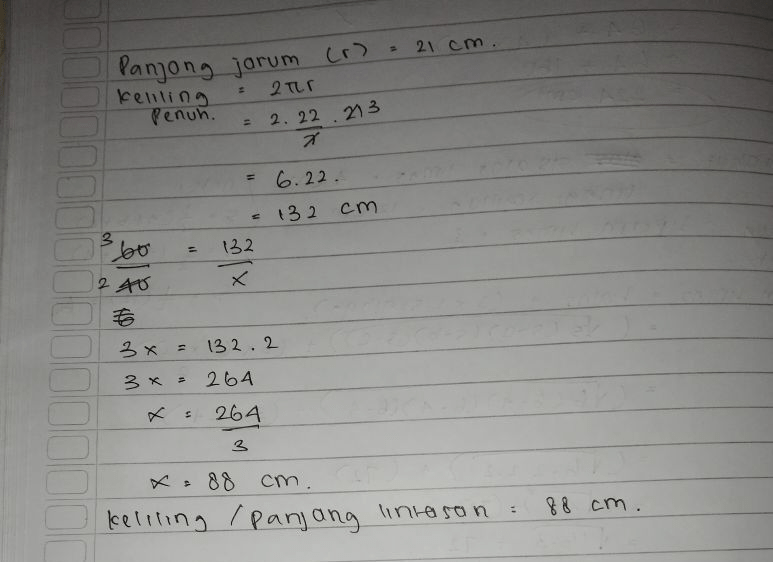 Panjang jarum (r) = 21 cm.
Keliling = 2πr
Penuh. = 2. 22/7 . 21 3
= 6.22.
= 132 cm
3 60/2 40 = 132/x
6
3x = 132.2
3x = 264
x = 264/3
x = 88 cm.
Keliling / panjang lintasan = 88 cm.